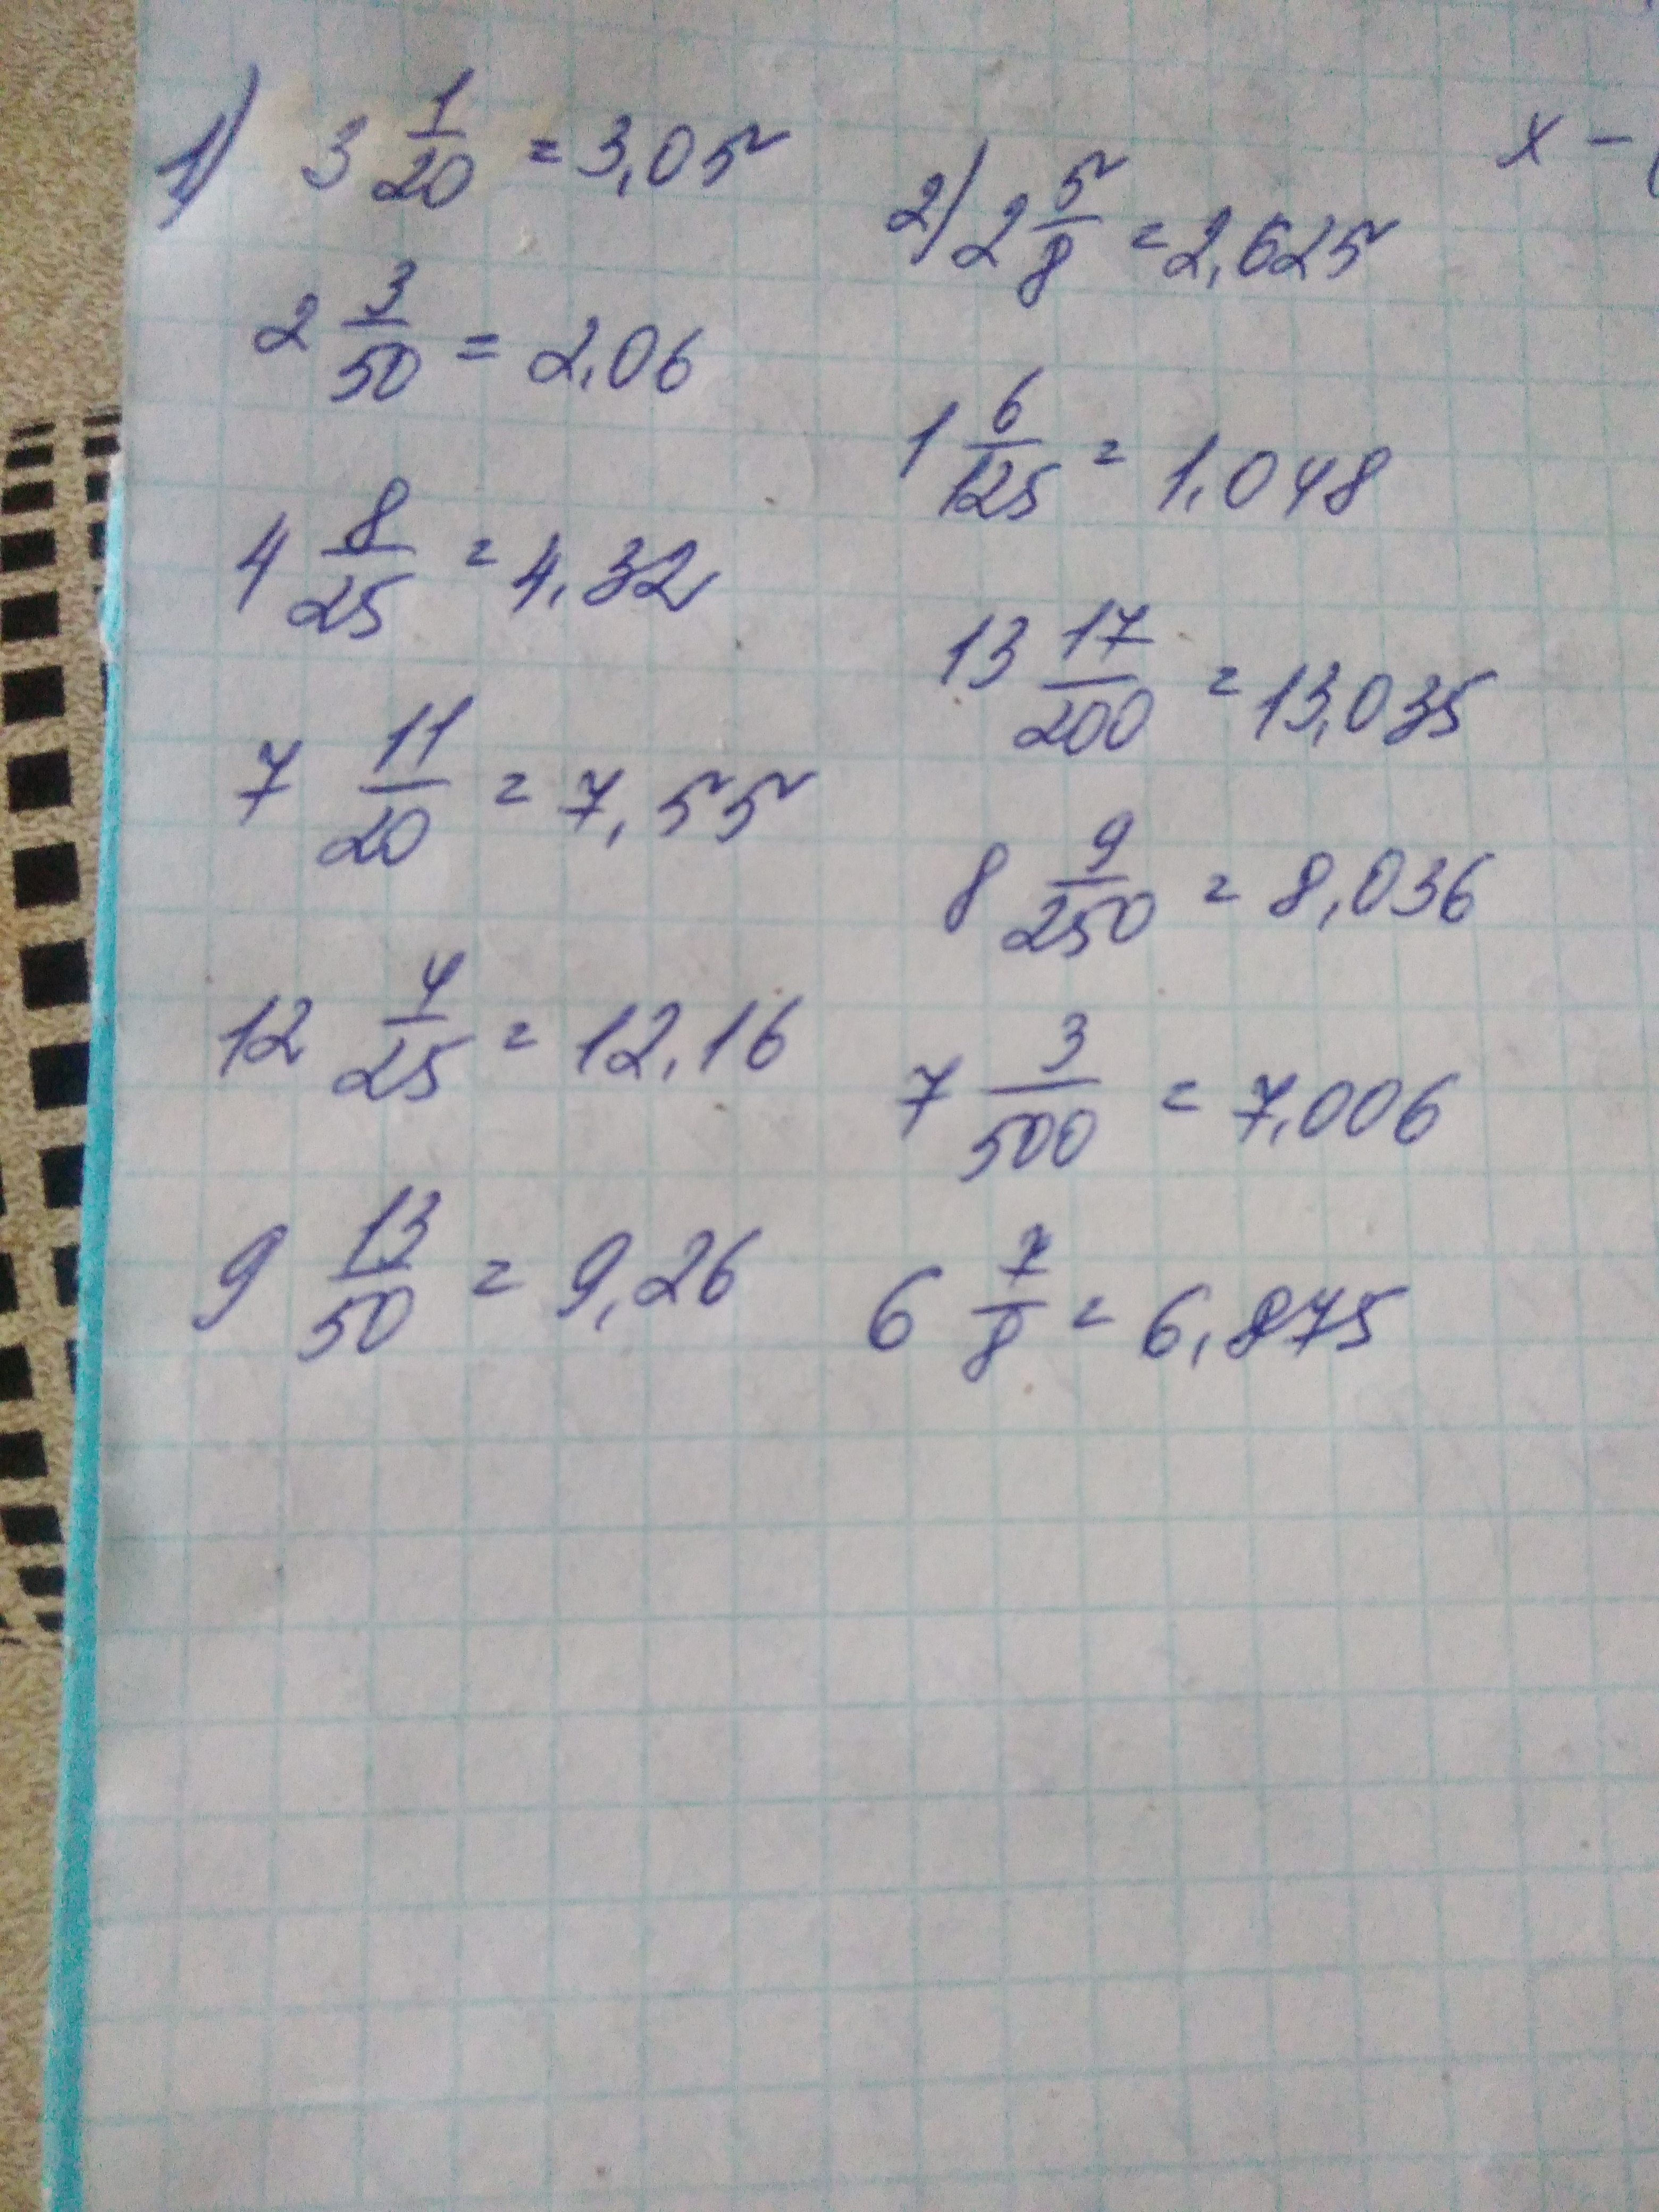 1) 3 1/20 = 3,05
2 3/50 = 2,06
4 8/25 = 4,32
7 11/20 = 7,55
12 4/25 = 12,16
9 13/50 = 9,26
2) 2 5/8 = 2,625
1 6/125 = 1,048
13 17/200 = 13,035
8 9/250 = 8,036
7 3/500 = 7,006
6 7/8 = 6,875
x - (